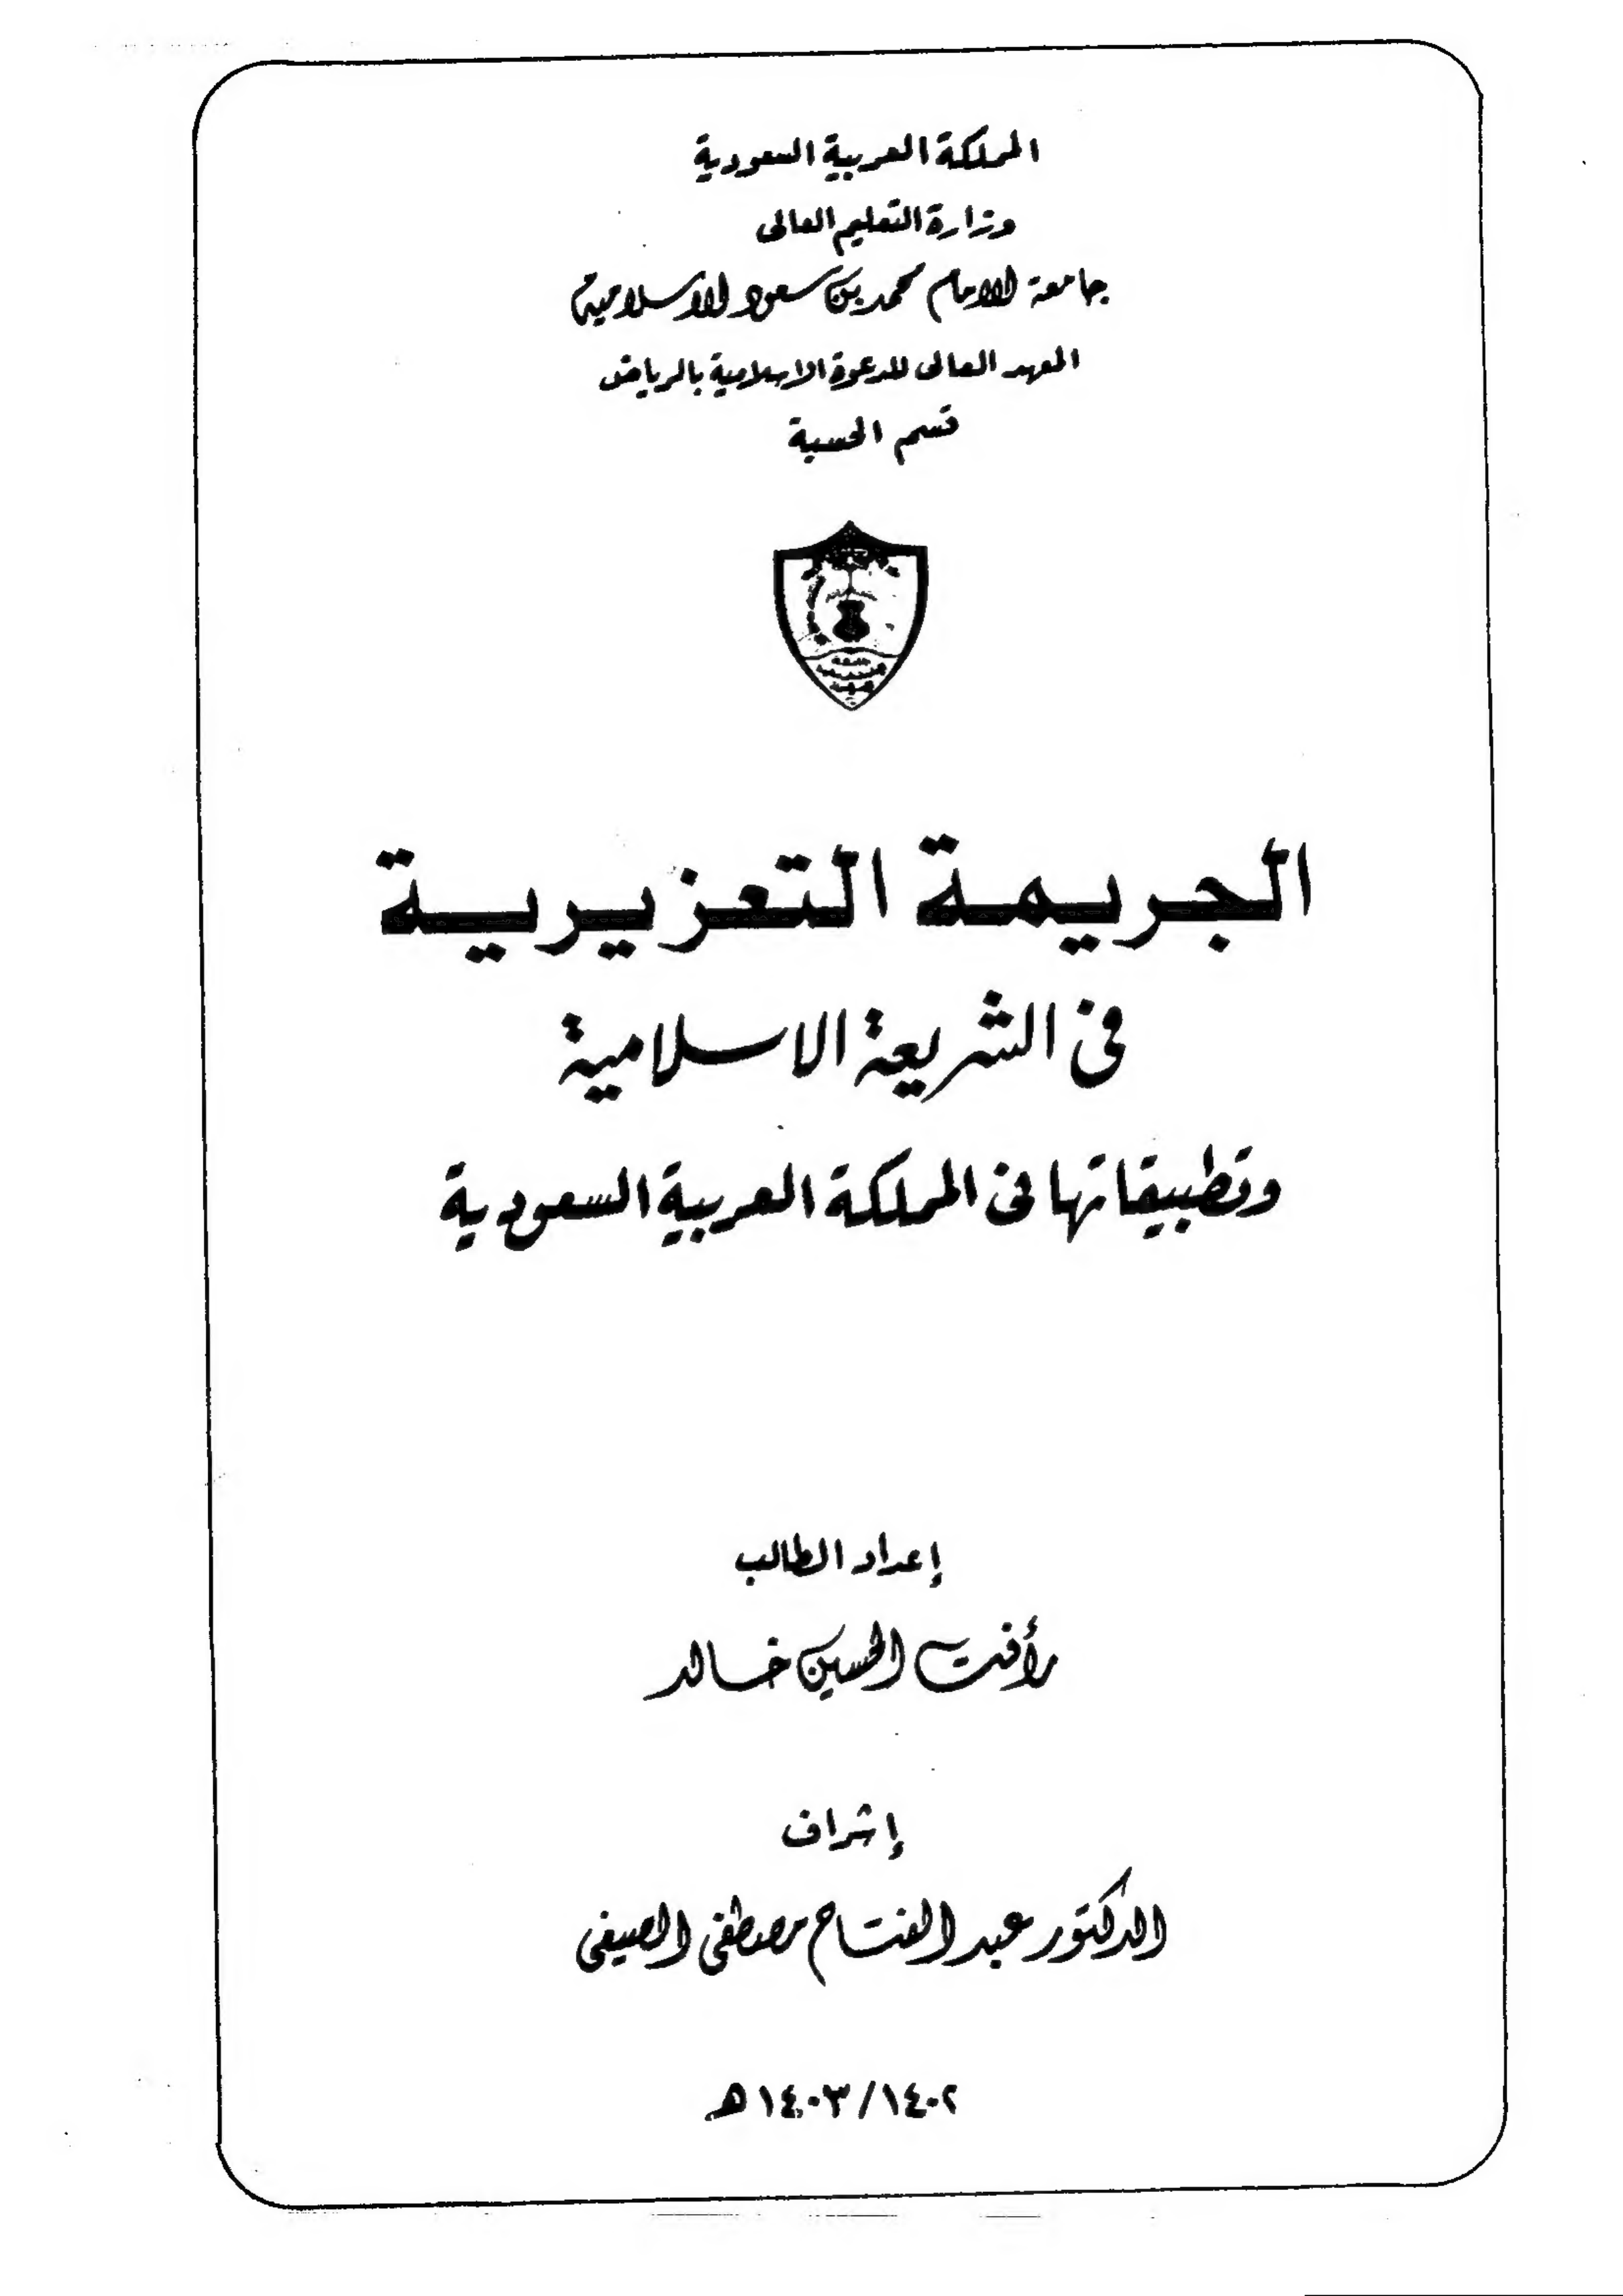 المملكة العربية السعودية
وزارة التعليم العالى
جامعة الامام محمد بن سعود الاسلامية
المعهد العالى للدعوة الاسلامية بالرياض
قسم الحسبة
الجريمة التعزيرية
فى الشريعة الاسلامية
وتطبيقاتها فى المملكة العربية السعودية
إعداد الطالب
رأفت الحسين خالد
إشراف
الدكتور عبد الفتاح مصطفى الصيفى
١٤٠٢/١٤٠٣ھ